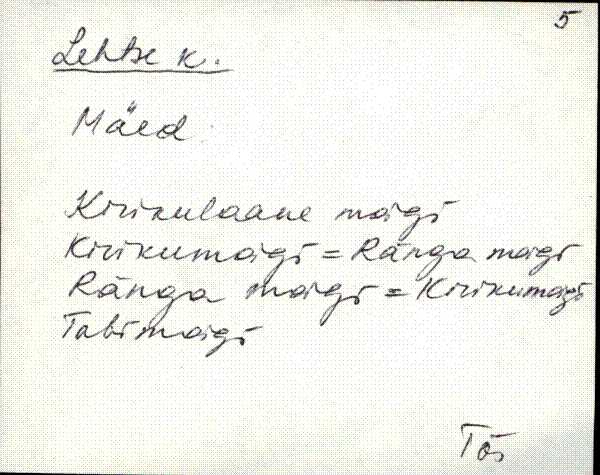 5
Lehtse k.
Mäed
Kirikulaane mägi
Kirikumägi = Ränga mägi
Ränga mägi = Kirikumägi
Tabimägi
Tõs